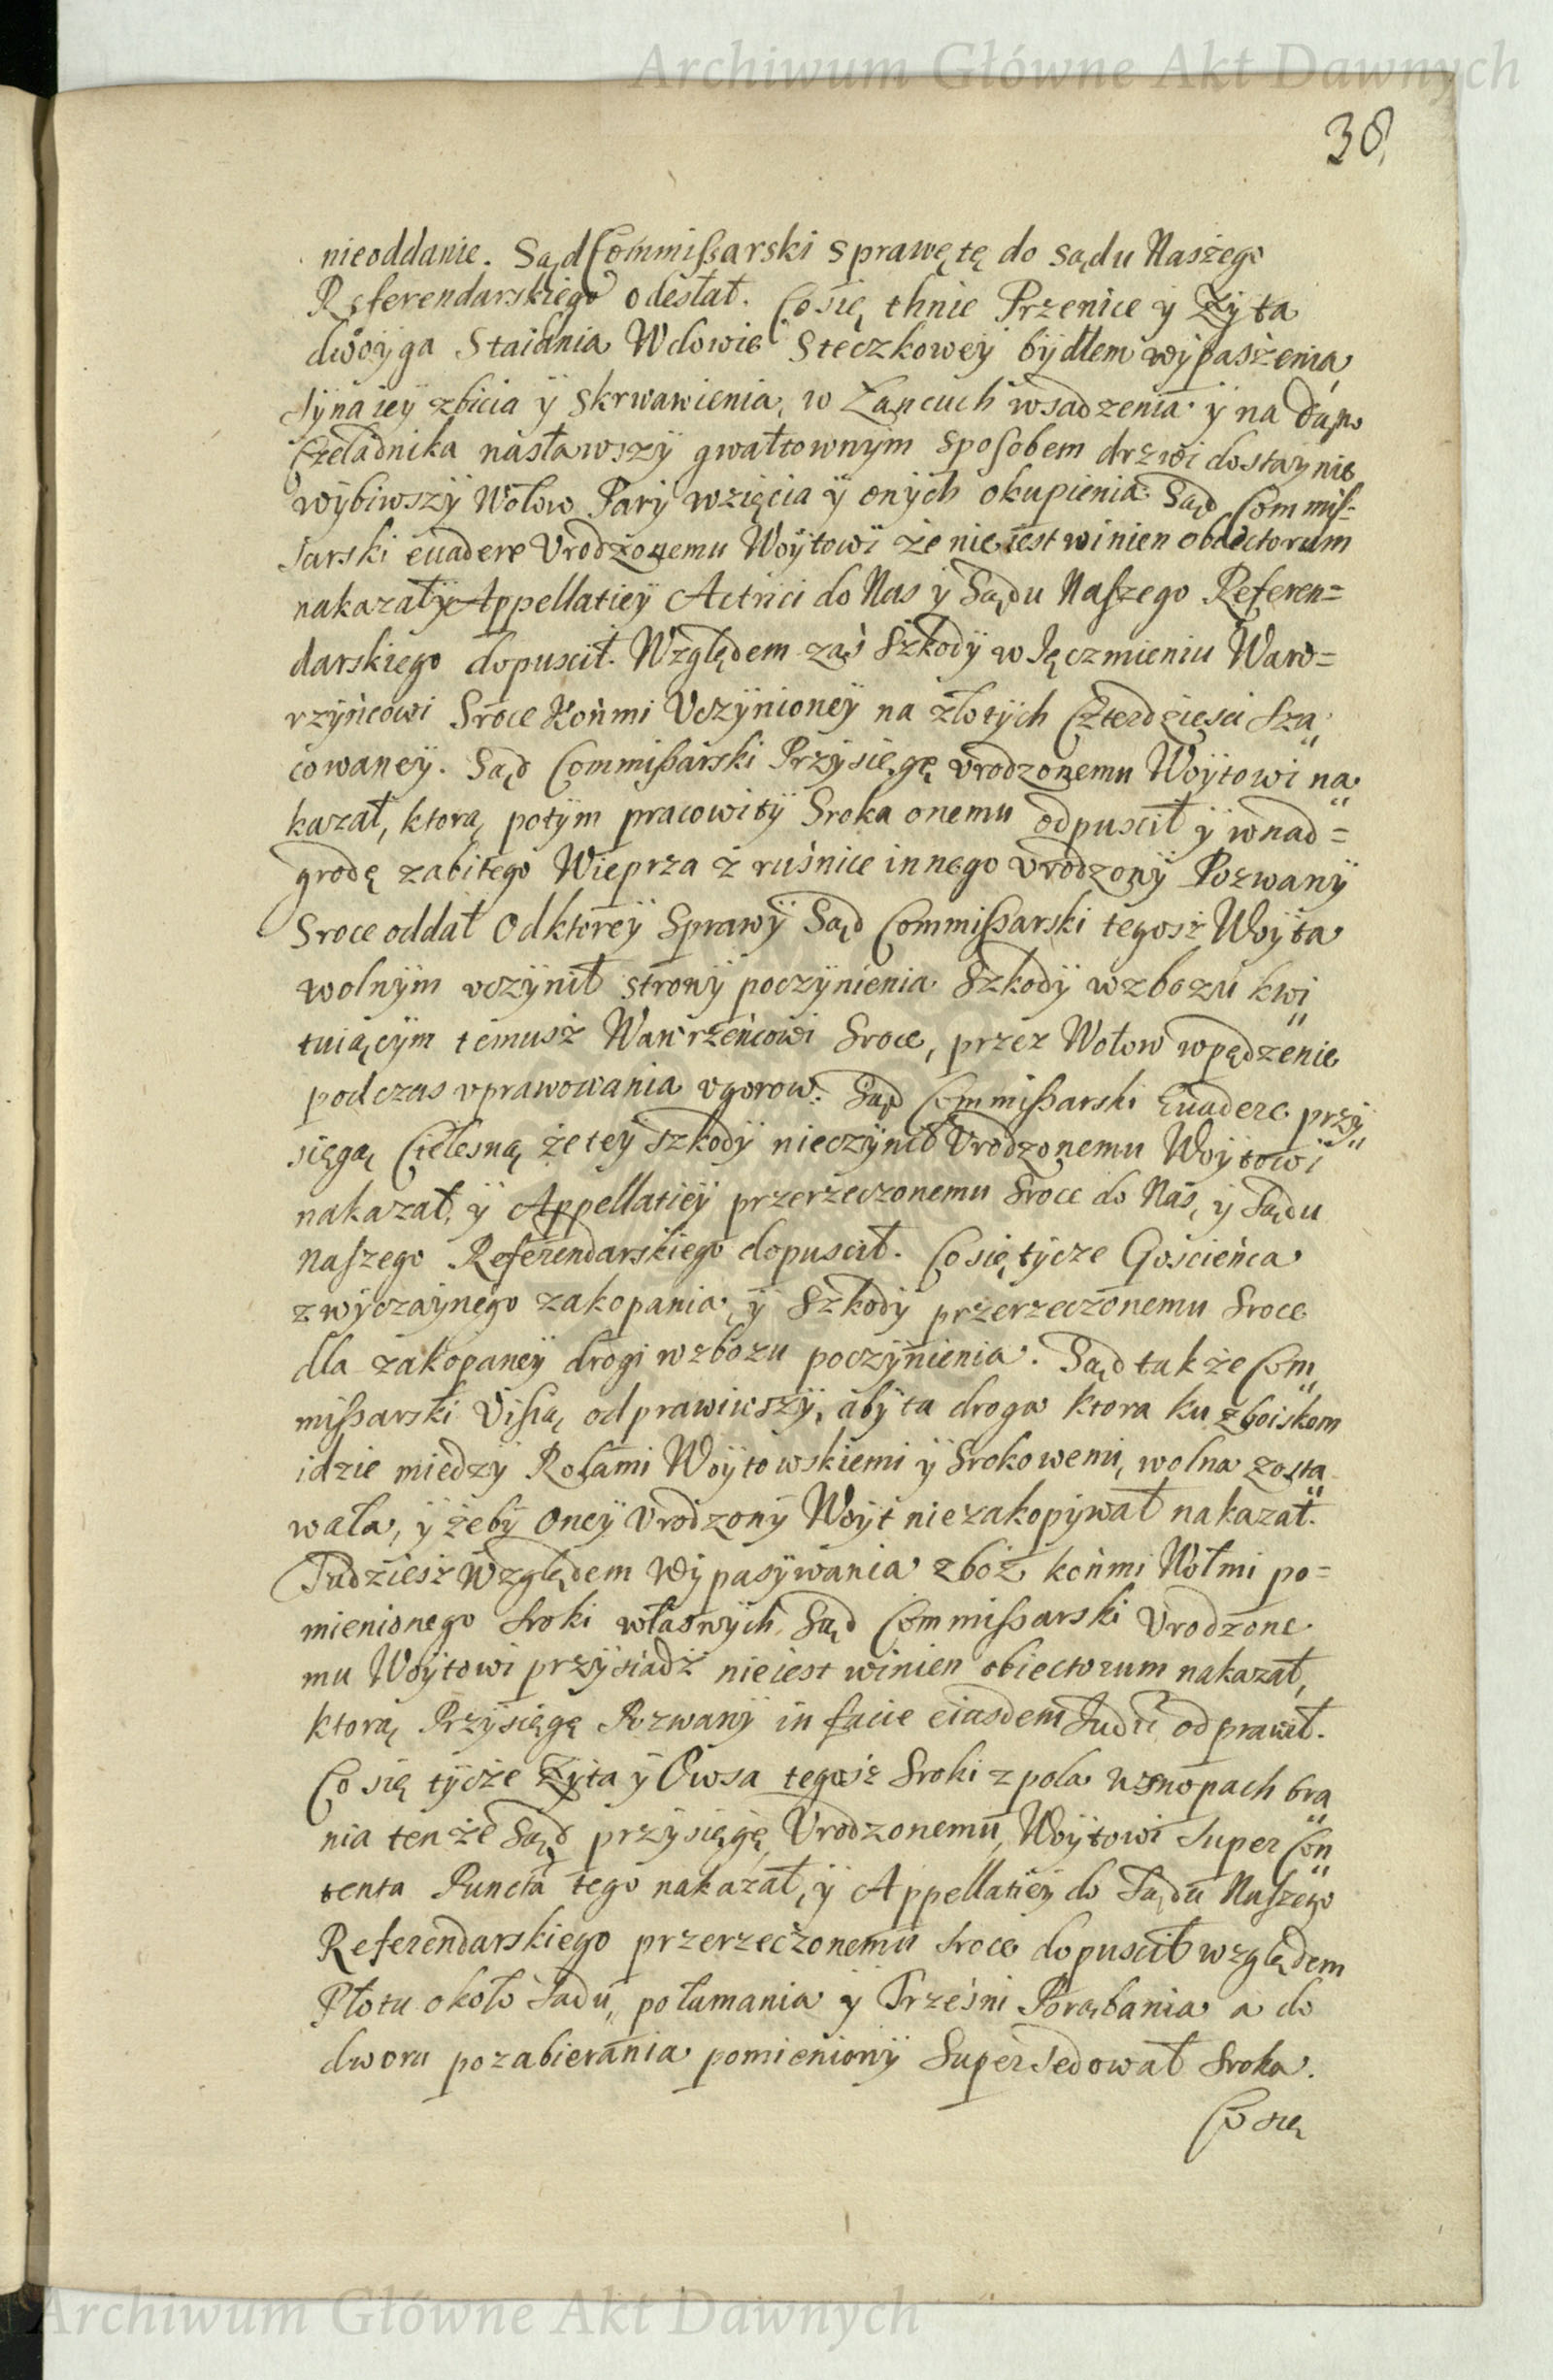 Archiwum Główne Akt Dawnych
38
nieoddanie. Sąd Commißarski sprawę tę do sądu Naszego
Referendarskiego odesłał. Co się thnie Przenice y Zyta
dwoyga Staiania Wdowie Steczkowey bydłem wypaszenia
syna iey zbicia y skrwawienia, w Łancuch wsadzenia y na
Czeladnika nasławszy gwałtownym sposobem drzwi dostaynie
wybiwszy Wołow Pary wzięcia y onych okupienia. Sąd Commis=
sarski euadere Vrodzonemu Woytowi że nie iest winien obiectorum
nakazał y Appellatiey Actrici do Nas y Sądu Naszego Referen=
darskiego dopuscił. Względem zaś szkody w Ięczmieniu Waw=
rzyńcowi Sroce Końmi Vczynioney na złotych Czterdziesci sza„
cowaney. Sąd Commißarski Przysięgę vrodzonemu Woytowi na„
kazał, ktorą potym pracowity Sroka onemu odpuscił y wnad=
grodę zabitego Wieprza z ruśnice innego vrodzony Pozwany
Sroce oddał Od ktorey Sprawy Sąd Commißarski tegosz Woyta
wolnym vczynił strony poczynienia Szkody w zbozu kwi„
tuiącym temusz Wawrzeńcowi Sroce, przez Wołow wpędzenie
podczas vprawowania vgorow. Sąd Commißarski Euadere przy„
sięgą Cielesną że tey szkody nieczynił Vrodzonemu Woytowi
nakazał, y Appellatiey przerzeczonemu Sroce do Nas, y Sądu
naszego Referendarskiego dopuscił. Co się tycze Gościeńca
zwyczaynego zakopania, y Szkody przerzeczonemu Sroce
dla zakopaney drogi w zbozu poczynienia. Sąd także Com„
mißarski Visią odprawiwszy, aby ta droga ktora ku zboiskom
idzie miedzy Rolami Woytowskiemi y Srokowemi, wolna zosta„
wała, y żeby oney Vrodzony Woyt niezakopywał nakazał.
Tudziesz Względem wypasywania zboż końmi Wołmi po=
mienionego Sroki własnych Sąd Commißarski Vrodzone
mu Woytowi przysiadz nieiest winien obiectorum nakazał,
ktorą Przysięgę Pozwany in facie eiusdem Iudii odprawił.
Co się tycze Zyta y Owsa tegosz Sroki z pola w snopach bra„
nia tenże Sąd przysięgę Vrodzonemu Woytowi super Con„
tenta Puncta tego nakazał, y Appellatiey do Sądu Naszego
Referendarskiego przerzeczonemu Sroce dopuscił względem
Płotu około Sadu, połamania y Trześni Porąbania a do
dworu pozabierania pomieniony Supersedował Sroka.
Co się
Archiwum Główne Akt Dawnych